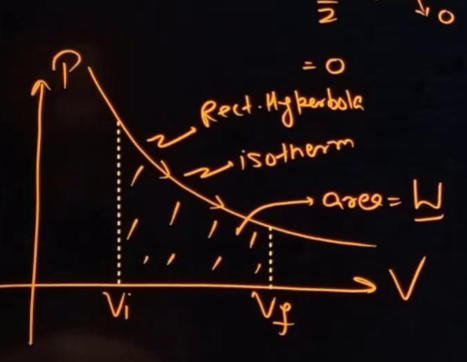 2
0
= 0
P
Rect. Hyperbola
isotherm
area = W
V
Vi
Vf